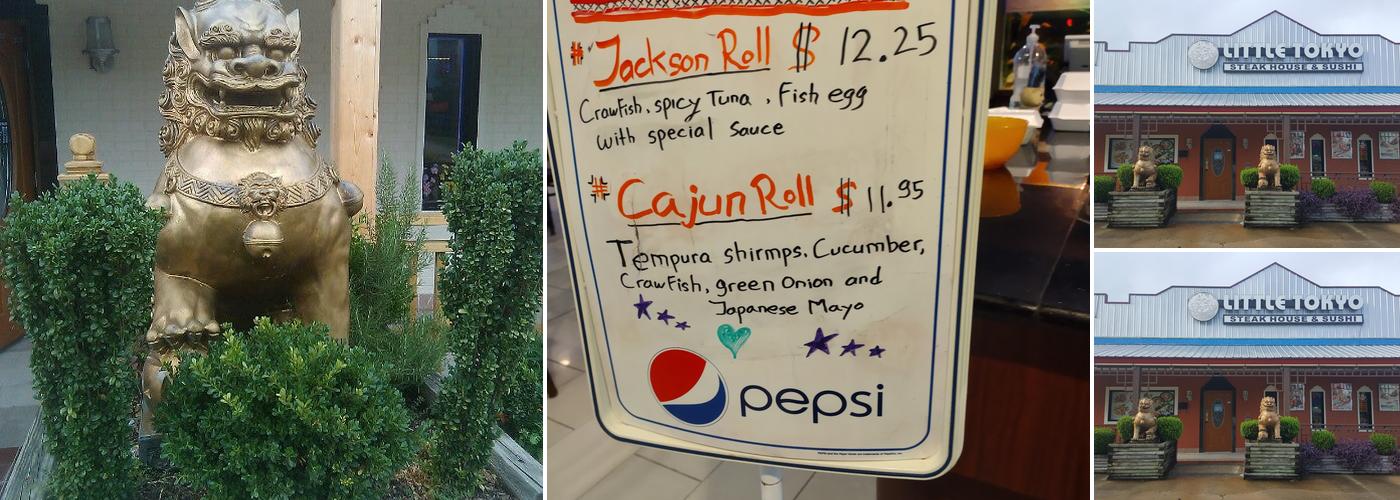 # Jackson Roll $ 12.25
CrawFish, spicy Tuna, Fish egg
with special sauce
# Cajun Roll $ 11.95
Tempura shirmps. Cucumber,
CrawFish, green Onion and
Japanese Mayo
pepsi
LITTLE TOKYO
STEAK HOUSE & SUSHI
LITTLE TOKYO
STEAK HOUSE & SUSHI